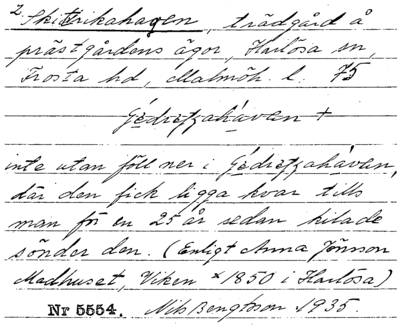 2 Sk. Erikahagen, trädgård å
prästgårdens ägor, Harlösa sn,
Frosta hd, Malmöh. l. 75
Gédretzahávan +
inte utan föll ner i Gédretzahávan,
där den fick ligga kvar tills
man för en 25 år sedan kilade
sönder den. (Enligt Anna Jönson
Madhuset, Viken * 1850 i Harlösa)
Nr 5554. Nils Bengtsson 1935.